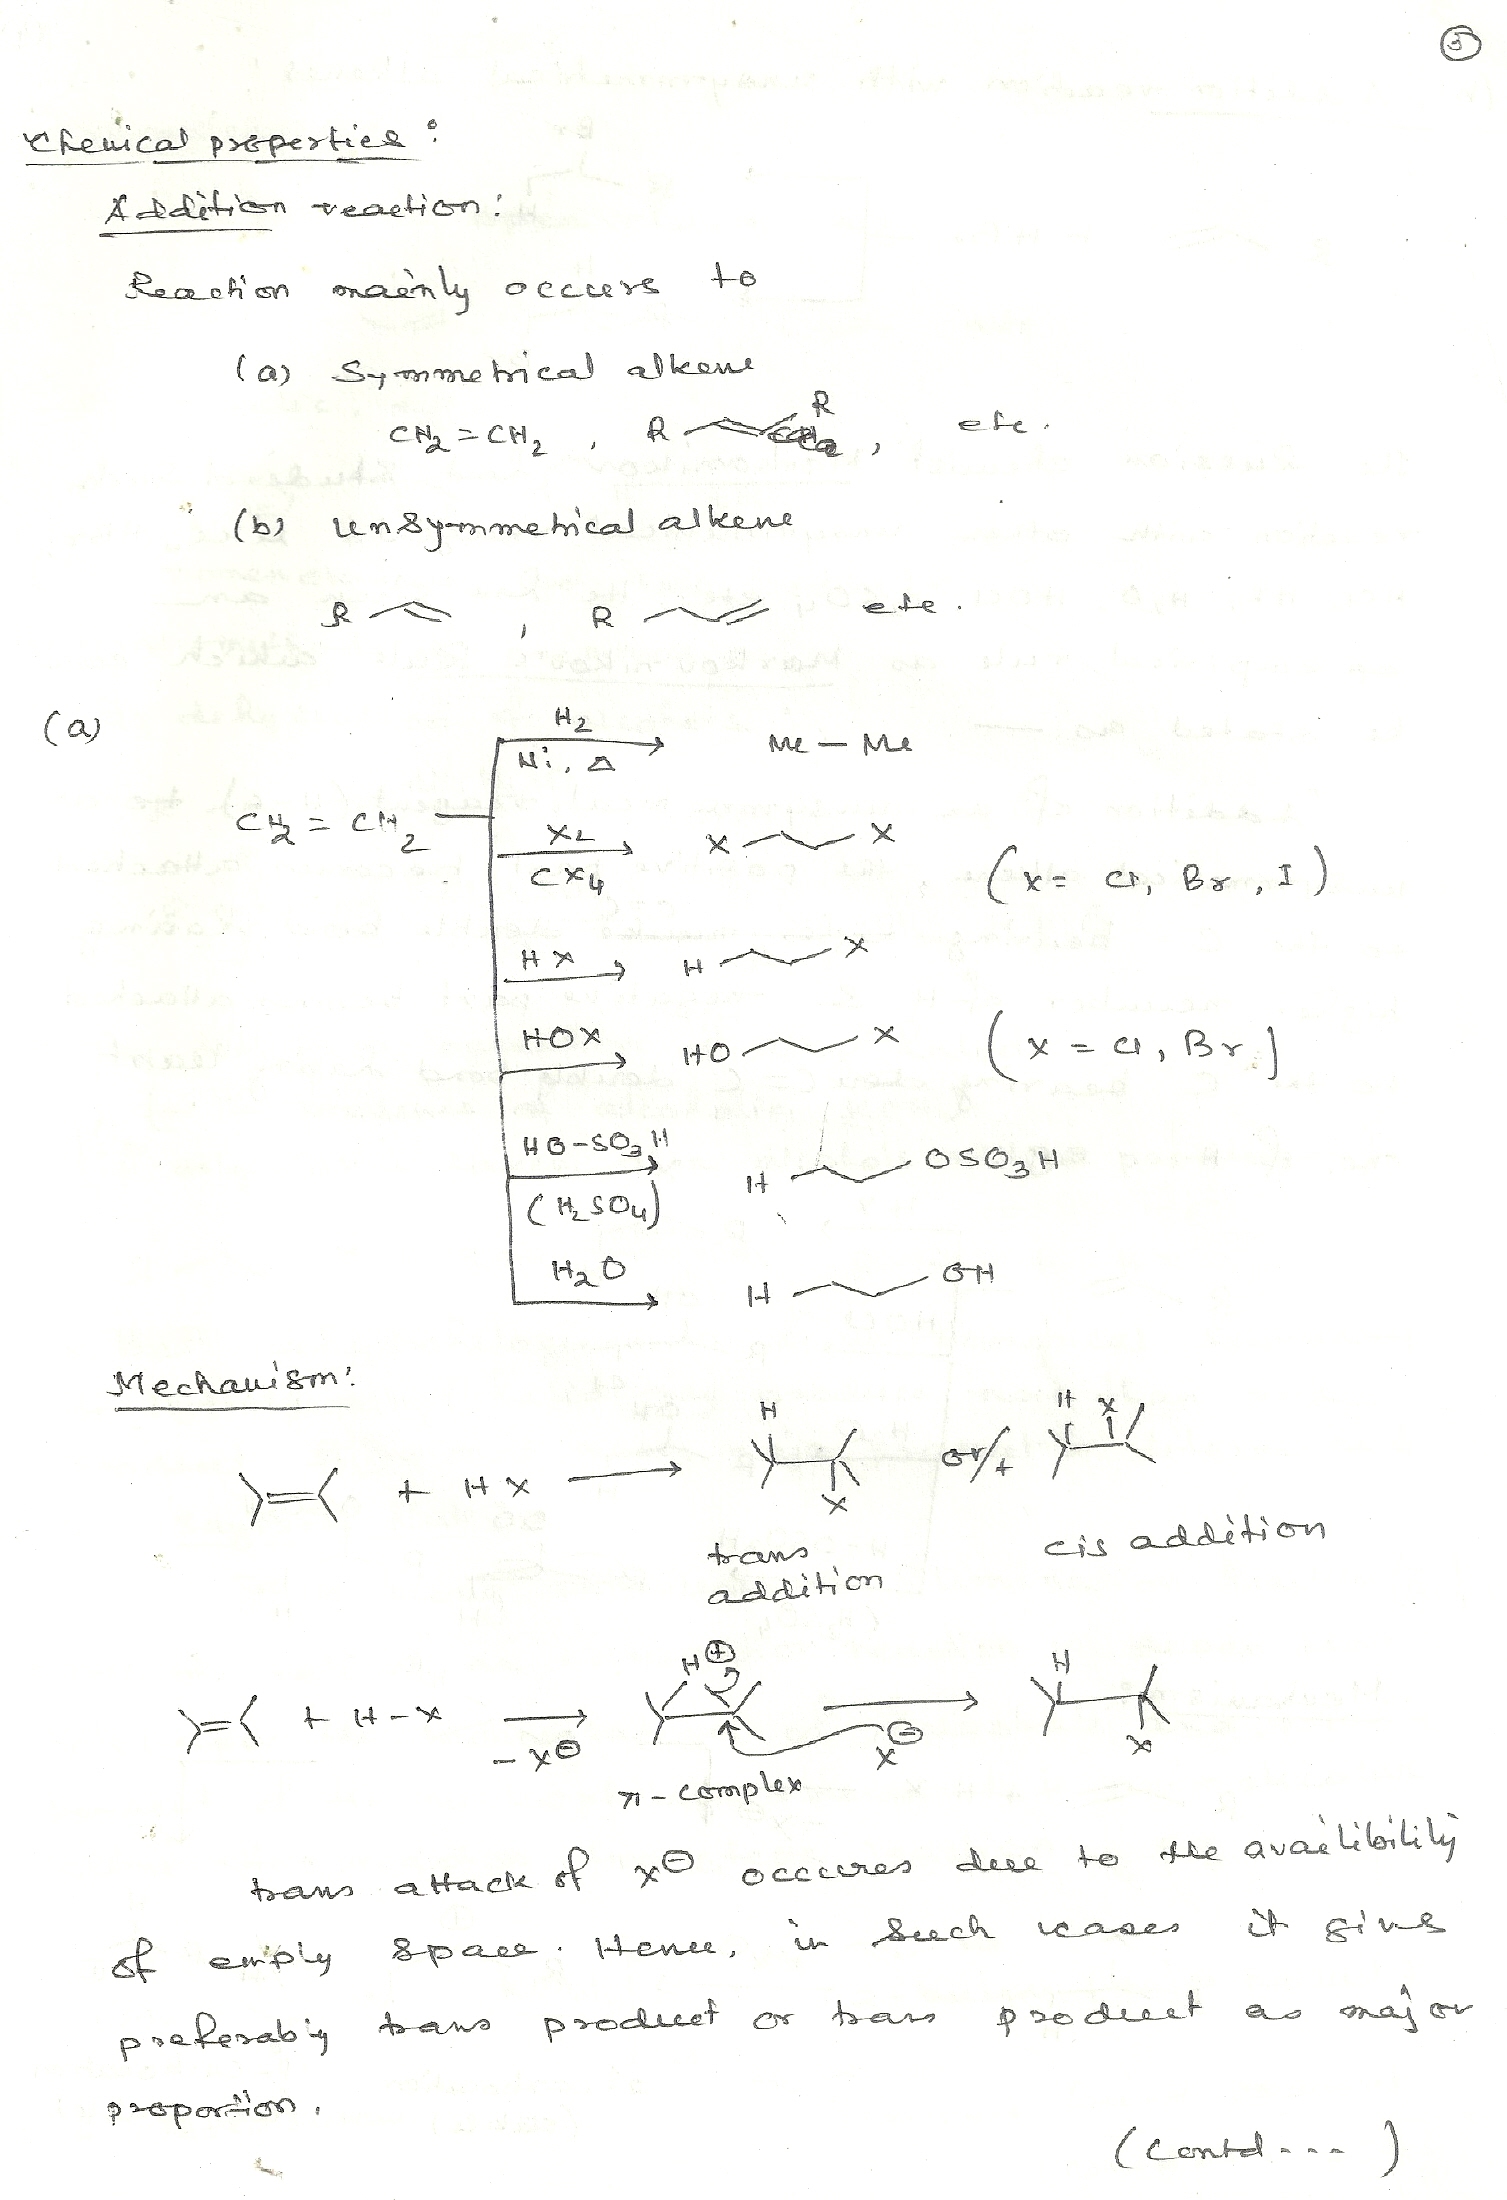 5
Chemical properties :
Addition reaction :
Reaction mainly occurs to
(a) Symmetrical alkene
CH2 = CH2 , R R , etc.
(b) Unsymmetrical alkene
R , R etc.
(a)
H2
Ni, Δ
Me – Me
CH2 = CH2
X2
CX4
X X
(X = Cl, Br, I)
HX
H X
HOX
HO X
(X = Cl, Br)
HO-SO3H
(H2SO4)
H OSO3H
H2O
H OH
Mechanism :
+ HX → H X or/+ H X
trans addition
cis addition
+ H-X
- X⊖
H ⊕
X⊖
H
X
π-complex
trans attack of X⊖ occures due to the availibility
of empty space. Hence, in such cases it gives
preferably trans product or trans product as major
proportion.
(Contd---)